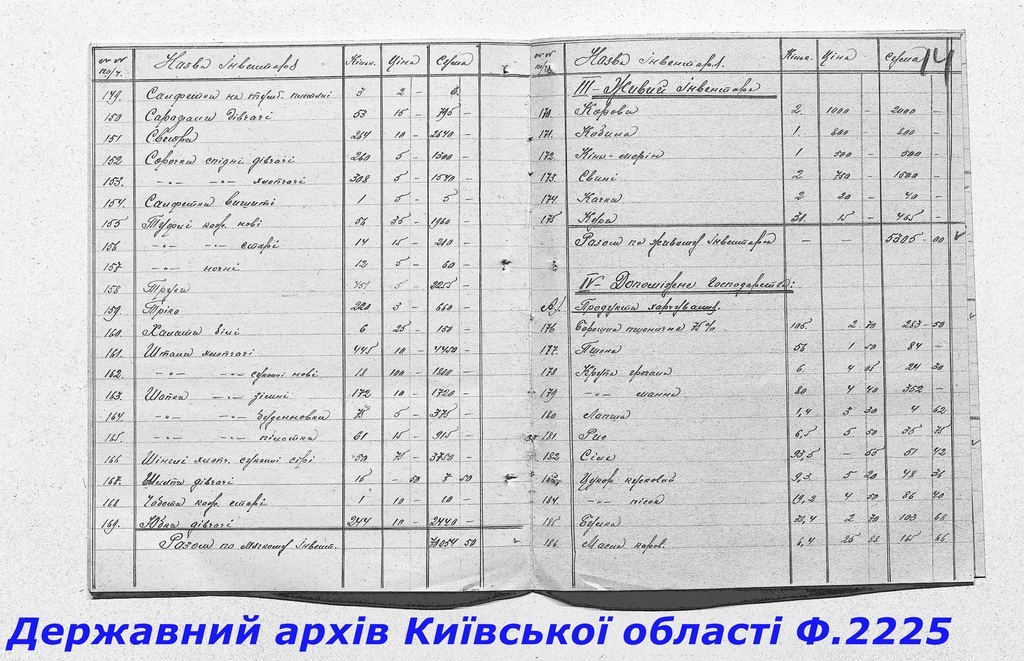 №№ по/ч. Назва інвентаря Кільк. Ціна Сума
149. Салфетки на тумб. 3 2 – 6. –
150 Сарафани дівчачі 53 15 – 795 –
151 Светора 264 10 – 2640 –
152 Сорочки спідні дівчачі 260 5 – 1300 –
153. –"– –"– хлопчачі 308 5 – 1540 –
154. Салфетки вишиті 1 5 – 5 –
155 Туфлі нові 56 35 – 1960 –
156 –"– –"– старі 14 15 – 210 –
157 –"– ночні 12 5 – 60 –
158 Труси 451 5 – 2255 –
159. Тріко 220 3 – 660 –
160. Халати білі 6 25 – 150 –
161. Штани хлопчачі 445 10 – 4450 –
162. –"– –"– суконні нові 18 100 – 1800 –
163. Шапки –"– зімні 172 10 – 1720 –
164. –"– –"– будьоновки 75 5 – 375 –
165. –"– –"– пілотки 61 15 – 915 –
166 Шінелі хлопч. суконні сірі 50 75 – 3750 –
167. дівчачі 15 – 50 7 50
168 Чоботи старі 1 10 – 10 –
169. Юбки дівчачі 244 10 – 2440 –
Разом по мягкому інвент. 50
14
№№ Назва інвентаря. Кільк. Ціна Сума
III – Живий інвентарь
170. Корови 2. 1000 – 2000 –
171. Кобила 1. 800 – 800 –
172. Кінь-мерін 1 500 – 500 –
173. Свині 2 750 – 1500 –
174. Качки 2 20 – 40 –
175 Кури 31. 15 – 465 –
Разом по живому інвентарю – – 5305 – 00
IV – Допоміжне господарство:
А/. Продукти харчування.
176. Борошна пшенична 75% 105. 2 70 283 – 50
177. Пшона 56 1 50 84 –
178 Крупа гречана 6. 4 05 24 30
179 –"– манна 80 4 40 352 –
180 Лапша 1,4 3 30 4 62
181. Рис 6,5 5 50 35 75
182 Сіль 93,5 – 55 51 42
183 Цукор кусковий 9,3. 5 20 48 36
184. –"– пісок 19,2 4 50 86 40
185 Булка 38,4 2 70 103 68
186. Масла коров. 6,4
Державний архів Київської області Ф.2225